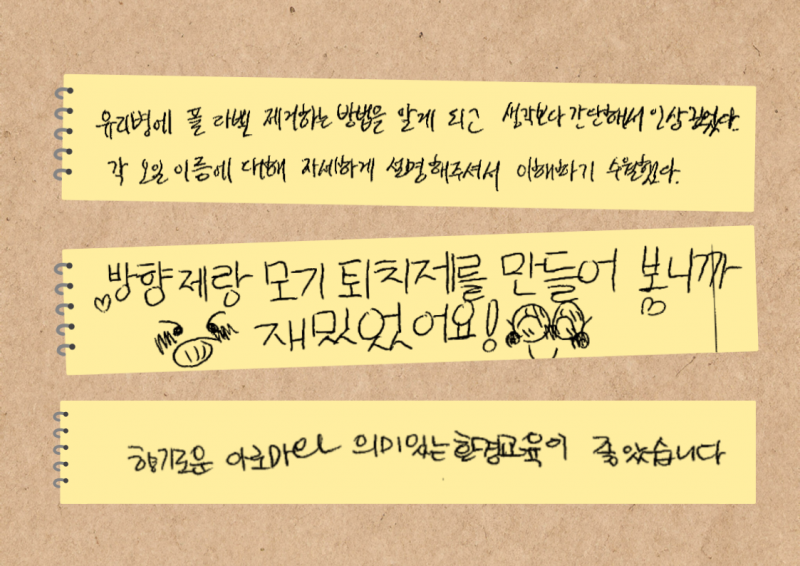 유리병에 풀 라벨 제거하는 방법을 알게 되고 생각보다 간단해서 인상 깊었다.
각 오일 이름에 대해 자세하게 설명해주셔서 이해하기 수월했다.
방향제랑 모기 퇴치제를 만들어 봄니까
재밌었어요!
향기로운 아로마와 의미있는 환경교육이 좋았습니다